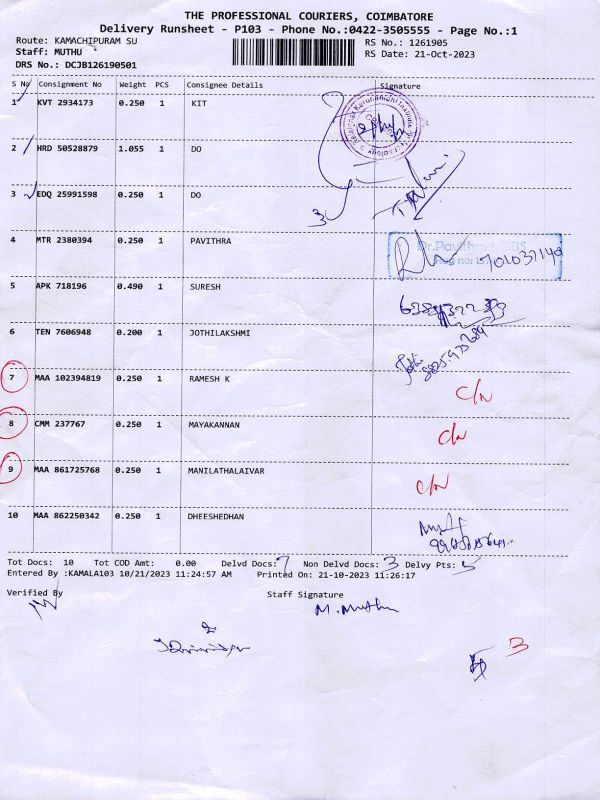 THE PROFESSIONAL COURIERS, COIMBATORE
Delivery Runsheet - P103 - Phone No.:0422-3505555 - Page No.:1
Route: KAMACHIPURAM SU RS No.: 1261905
Staff: MUTHU RS Date: 21-Oct-2023
DRS No.: DCJB126190501
S No Consignment No Weight PCS Consignee Details Signature
1 KVT 2934173 0.250 1 KIT
2 HRD 50528879 1.055 1 DO
3 EDQ 25991598 0.250 1 DO
3
4 MTR 2380394 0.250 1 PAVITHRA
Dr.Pavithra MBBS
5 APK 718196 0.490 1 SURESH
6 TEN 7606948 0.200 1 JOTHILAKSHMI
7 MAA 102394819 0.250 1 RAMESH K C/N
8 CMM 237767 0.250 1 MAYAKANNAN C/N
9 MAA 861725768 0.250 1 MANILATHALAIVAR C/N
10 MAA 862250342 0.250 1 DHEESHEDHAN
Tot Docs: 10 Tot COD Amt: 0.00 Delvd Docs: 7 Non Delvd Docs: 3 Delvy Pts: 5
Entered By :KAMALA103 10/21/2023 11:24:57 AM Printed On: 21-10-2023 11:26:17
Verified By Staff Signature
M. Muthu
3